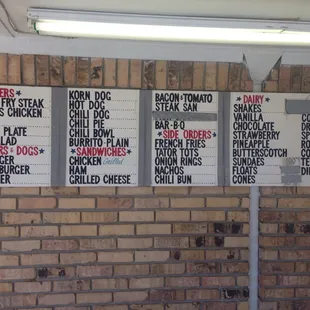 ERS
FRY STEAK
S CHICKEN
PLATE
ALAD
RS & DOGS
GER
BURGER
URGER
KORN DOG
HOT DOG
CHILI DOG
CHILI PIE
CHILI BOWL
BURRITO-PLAIN
*SANDWICHES*
CHICKEN
HAM
GRILLED CHEESE
BACON & TOMATO
STEAK SAN
BAR-B-Q
*SIDE ORDERS*
FRENCH FRIES
TATOR TOTS
ONION RINGS
NACHOS
CHILI BUN
*DAIRY*
SHAKES
VANILLA
CHOCOLATE
STRAWBERRY
PINEAPPLE
BUTTERSCOTCH
SUNDAES
FLOATS
CONES
CO
DR
SPR
RO